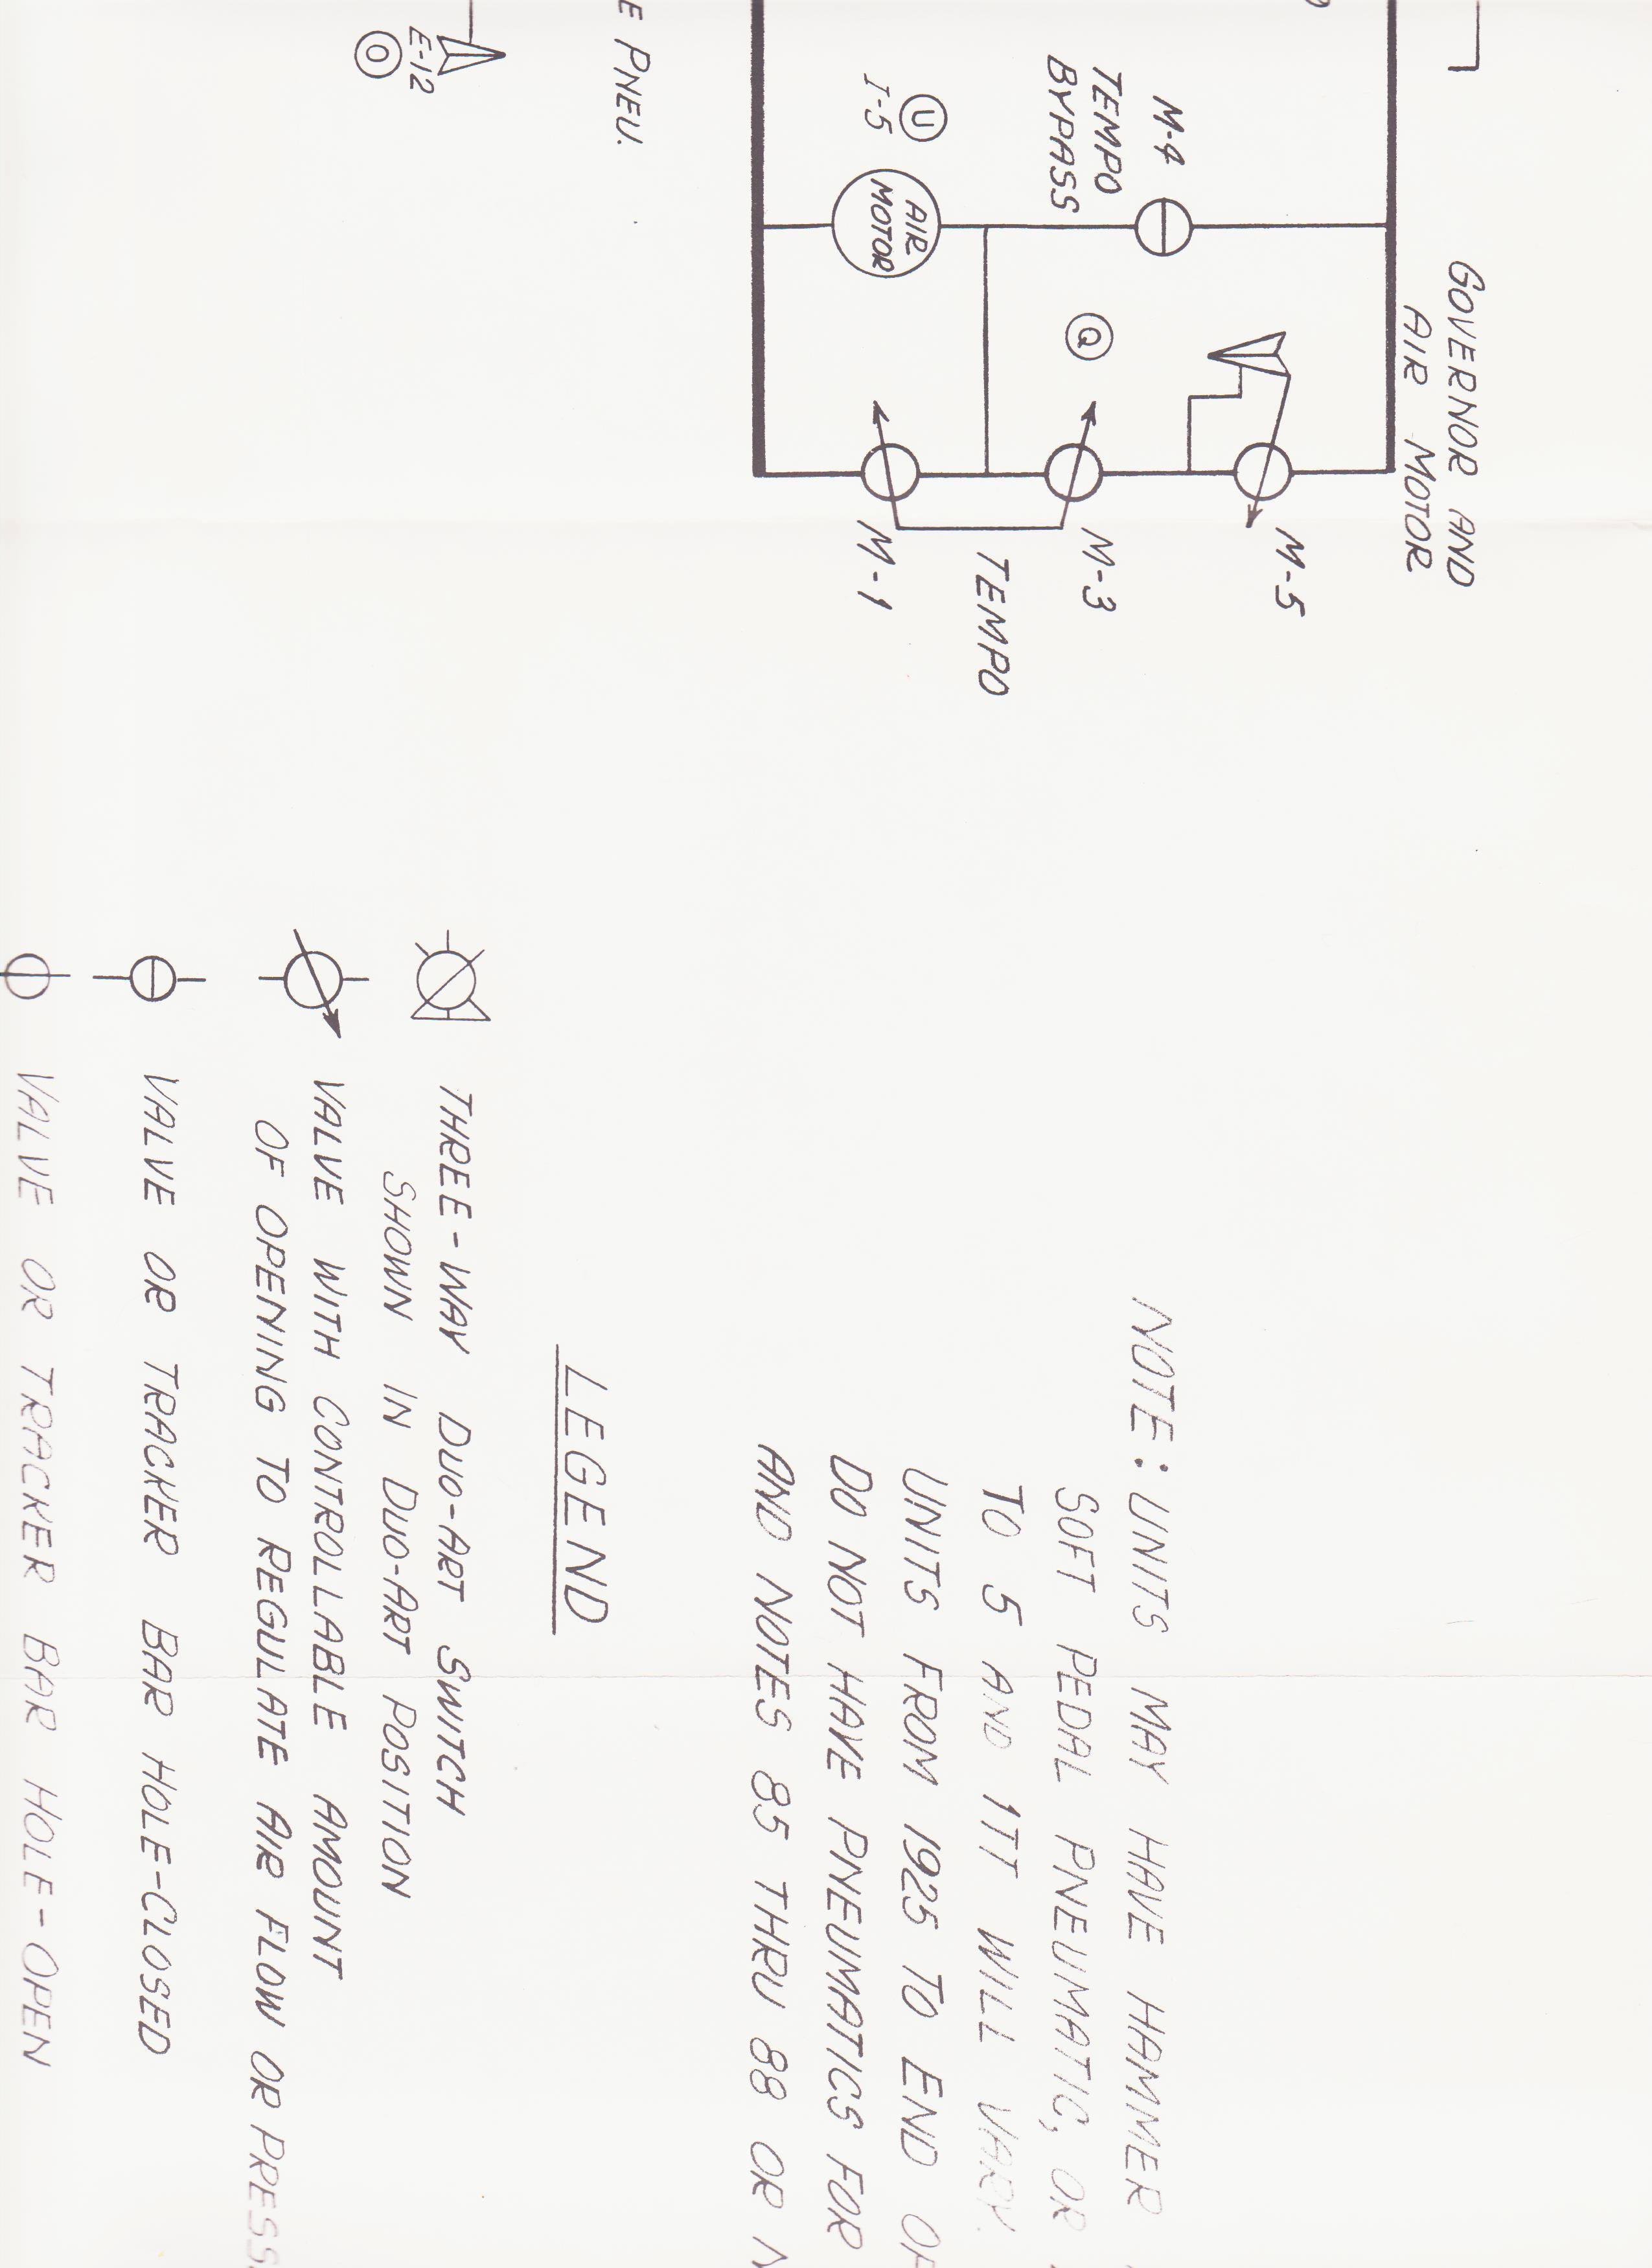 GOVERNOR AND
AIR MOTOR
M-5
M-4
TEMPO
BYPASS
Q
M-3
TEMPO
U
I-5
AIR
MOTOR
M-1
E PNEU.
E-12
O
NOTE: UNITS MAY HAVE HAMMER
SOFT PEDAL PNEUMATIC, OR
TO 5 AND 1TT WILL VARY.
UNITS FROM 1925 TO END OF
DO NOT HAVE PNEUMATICS FOR
AND NOTES 85 THRU 88 OR N
LEGEND
THREE-WAY DUO-ART SWITCH
SHOWN IN DUO-ART POSITION
VALVE WITH CONTROLLABLE AMOUNT
OF OPENING TO REGULATE AIR FLOW OR PRESS
VALVE OR TRACKER BAR HOLE-CLOSED
VALVE OR TRACKER BAR HOLE-OPEN